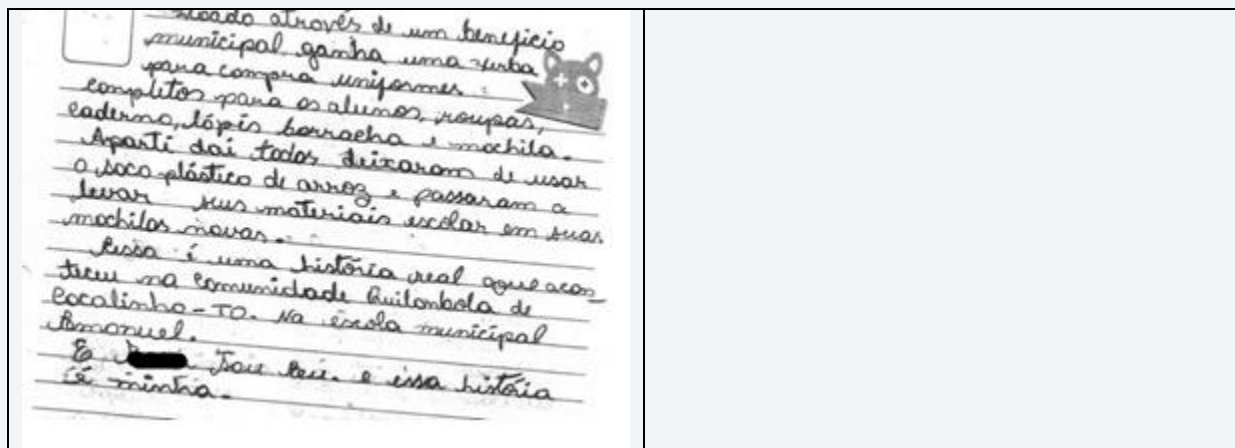 através de um beneficio
municipal ganha uma verba
para compra uniformes
completos para os alunos, roupas,
caderno, lápis borracha e mochila.
Aparti daí todos deixaram de usar
o saco plástico de arroz e passaram a
levar seus materiais escolar em suas
mochilas novas.
Essa é uma história real que acon-
teceu na comunidade Quilonbola de
Cocalinho-TO. Na escola municipal
Emanuel.
E sou eu. e essa história
é minha.